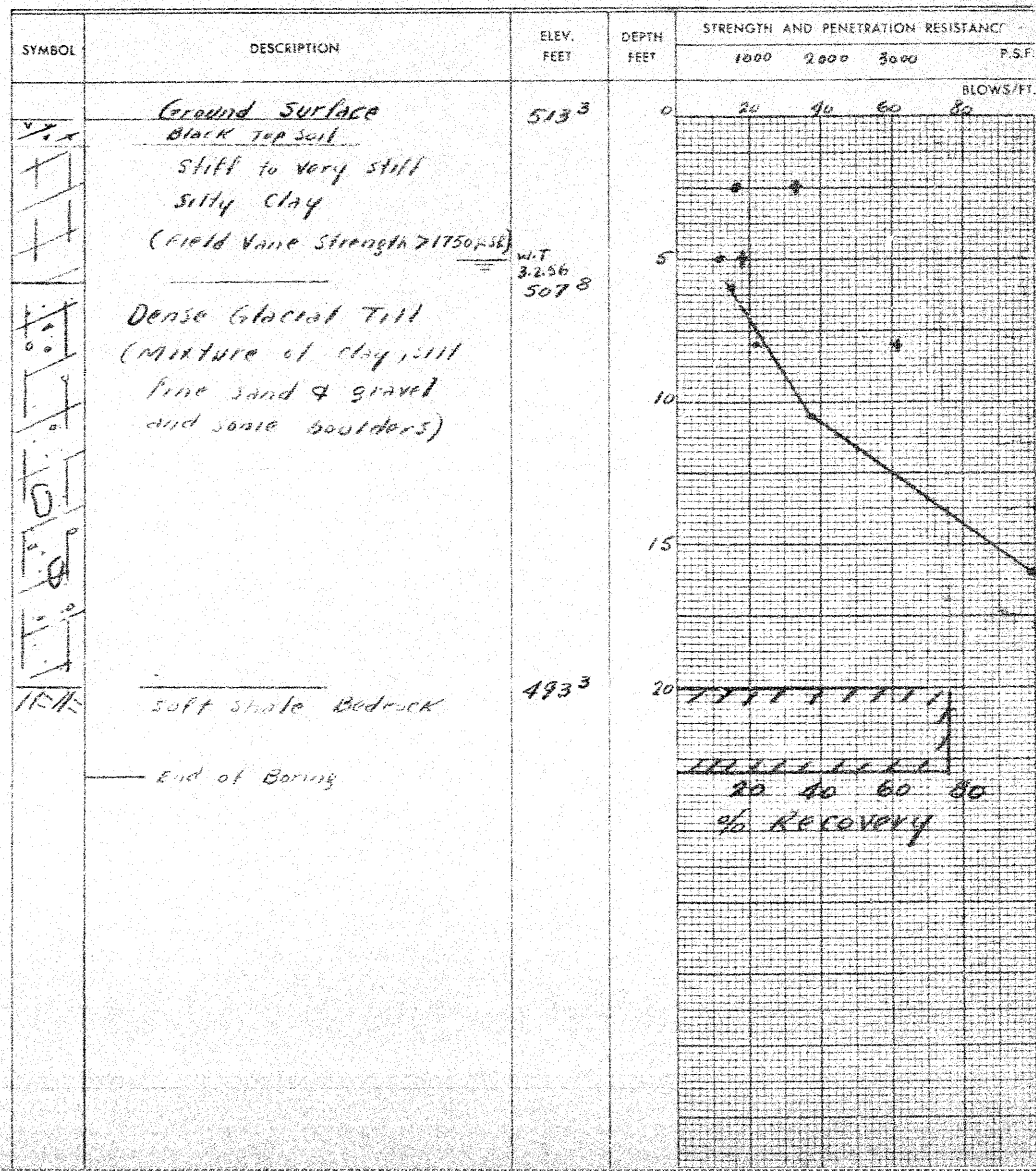 SYMBOL
DESCRIPTION
ELEV.
FEET
DEPTH
FEET
STRENGTH AND PENETRATION RESISTANCE
1000 2000 3000 P.S.F.
BLOWS/FT.
20 40 60 80
Ground Surface 513³ 0
Black Top Soil
Stiff to very stiff
Silty Clay
(Field Vane Strength >1750psf)
W.T
3.2.56
5
507⁸
Dense Glacial Till
(Mixture of clay, silt
fine sand & gravel
and some boulders)
10
15
Soft Shale Bedrock 493³ 20
End of Boring
20 40 60 80
% Recovery